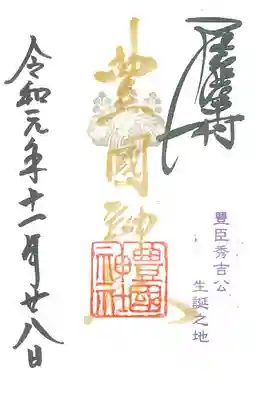 豐臣秀吉公
生誕之地
豊國神社
豊國神社
令和元年十一月廿八日